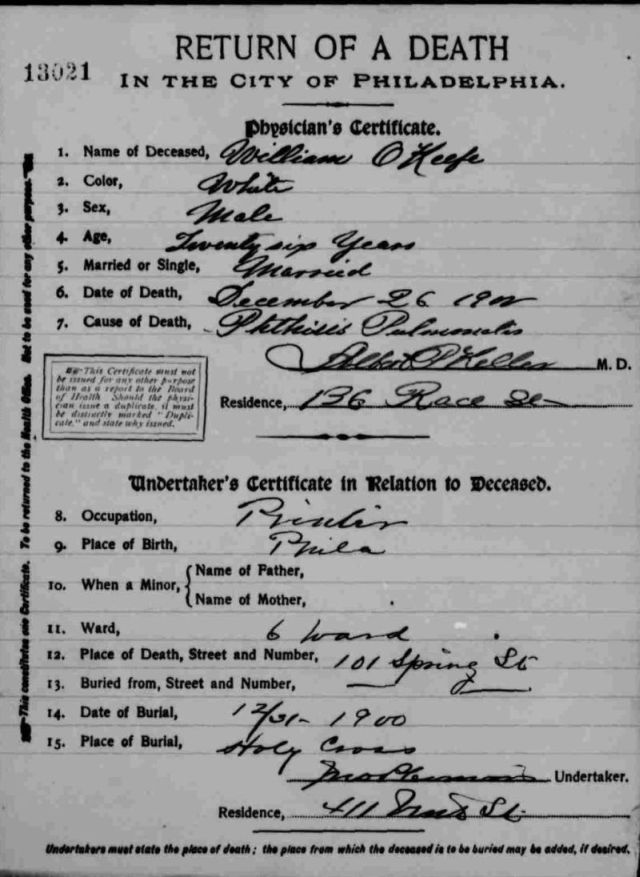 13021
RETURN OF A DEATH
IN THE CITY OF PHILADELPHIA.
Physician's Certificate.
1. Name of Deceased, William O'Keefe
2. Color, White
3. Sex, Male
4. Age, Twenty six Years
5. Married or Single, Married
6. Date of Death, December 26 1900
7. Cause of Death, Phthisis Pulmonalis
Albert P Keller M. D.
Residence, 136 Race St
This Certificate must not
be issued for any other purpose
than as a report to the Board
of Health. Should the physi-
cian issue a duplicate, it must
be distinctly marked "Dupli-
cate," and state why issued.
Undertaker's Certificate in Relation to Deceased.
8. Occupation, Printer
9. Place of Birth, Phila
10. When a Minor, Name of Father,
Name of Mother,
11. Ward, 6 Ward
12. Place of Death, Street and Number, 101 Spring St
13. Buried from, Street and Number,
14. Date of Burial, 12/31-1900
15. Place of Burial, Holy Cross
Undertaker.
Residence, 411 St
Undertakers must state the place of death; the place from which the deceased is to be buried may be added, if desired.
This constitutes one Certificate. To be returned to the Health Office. Not to be used for any other purpose.